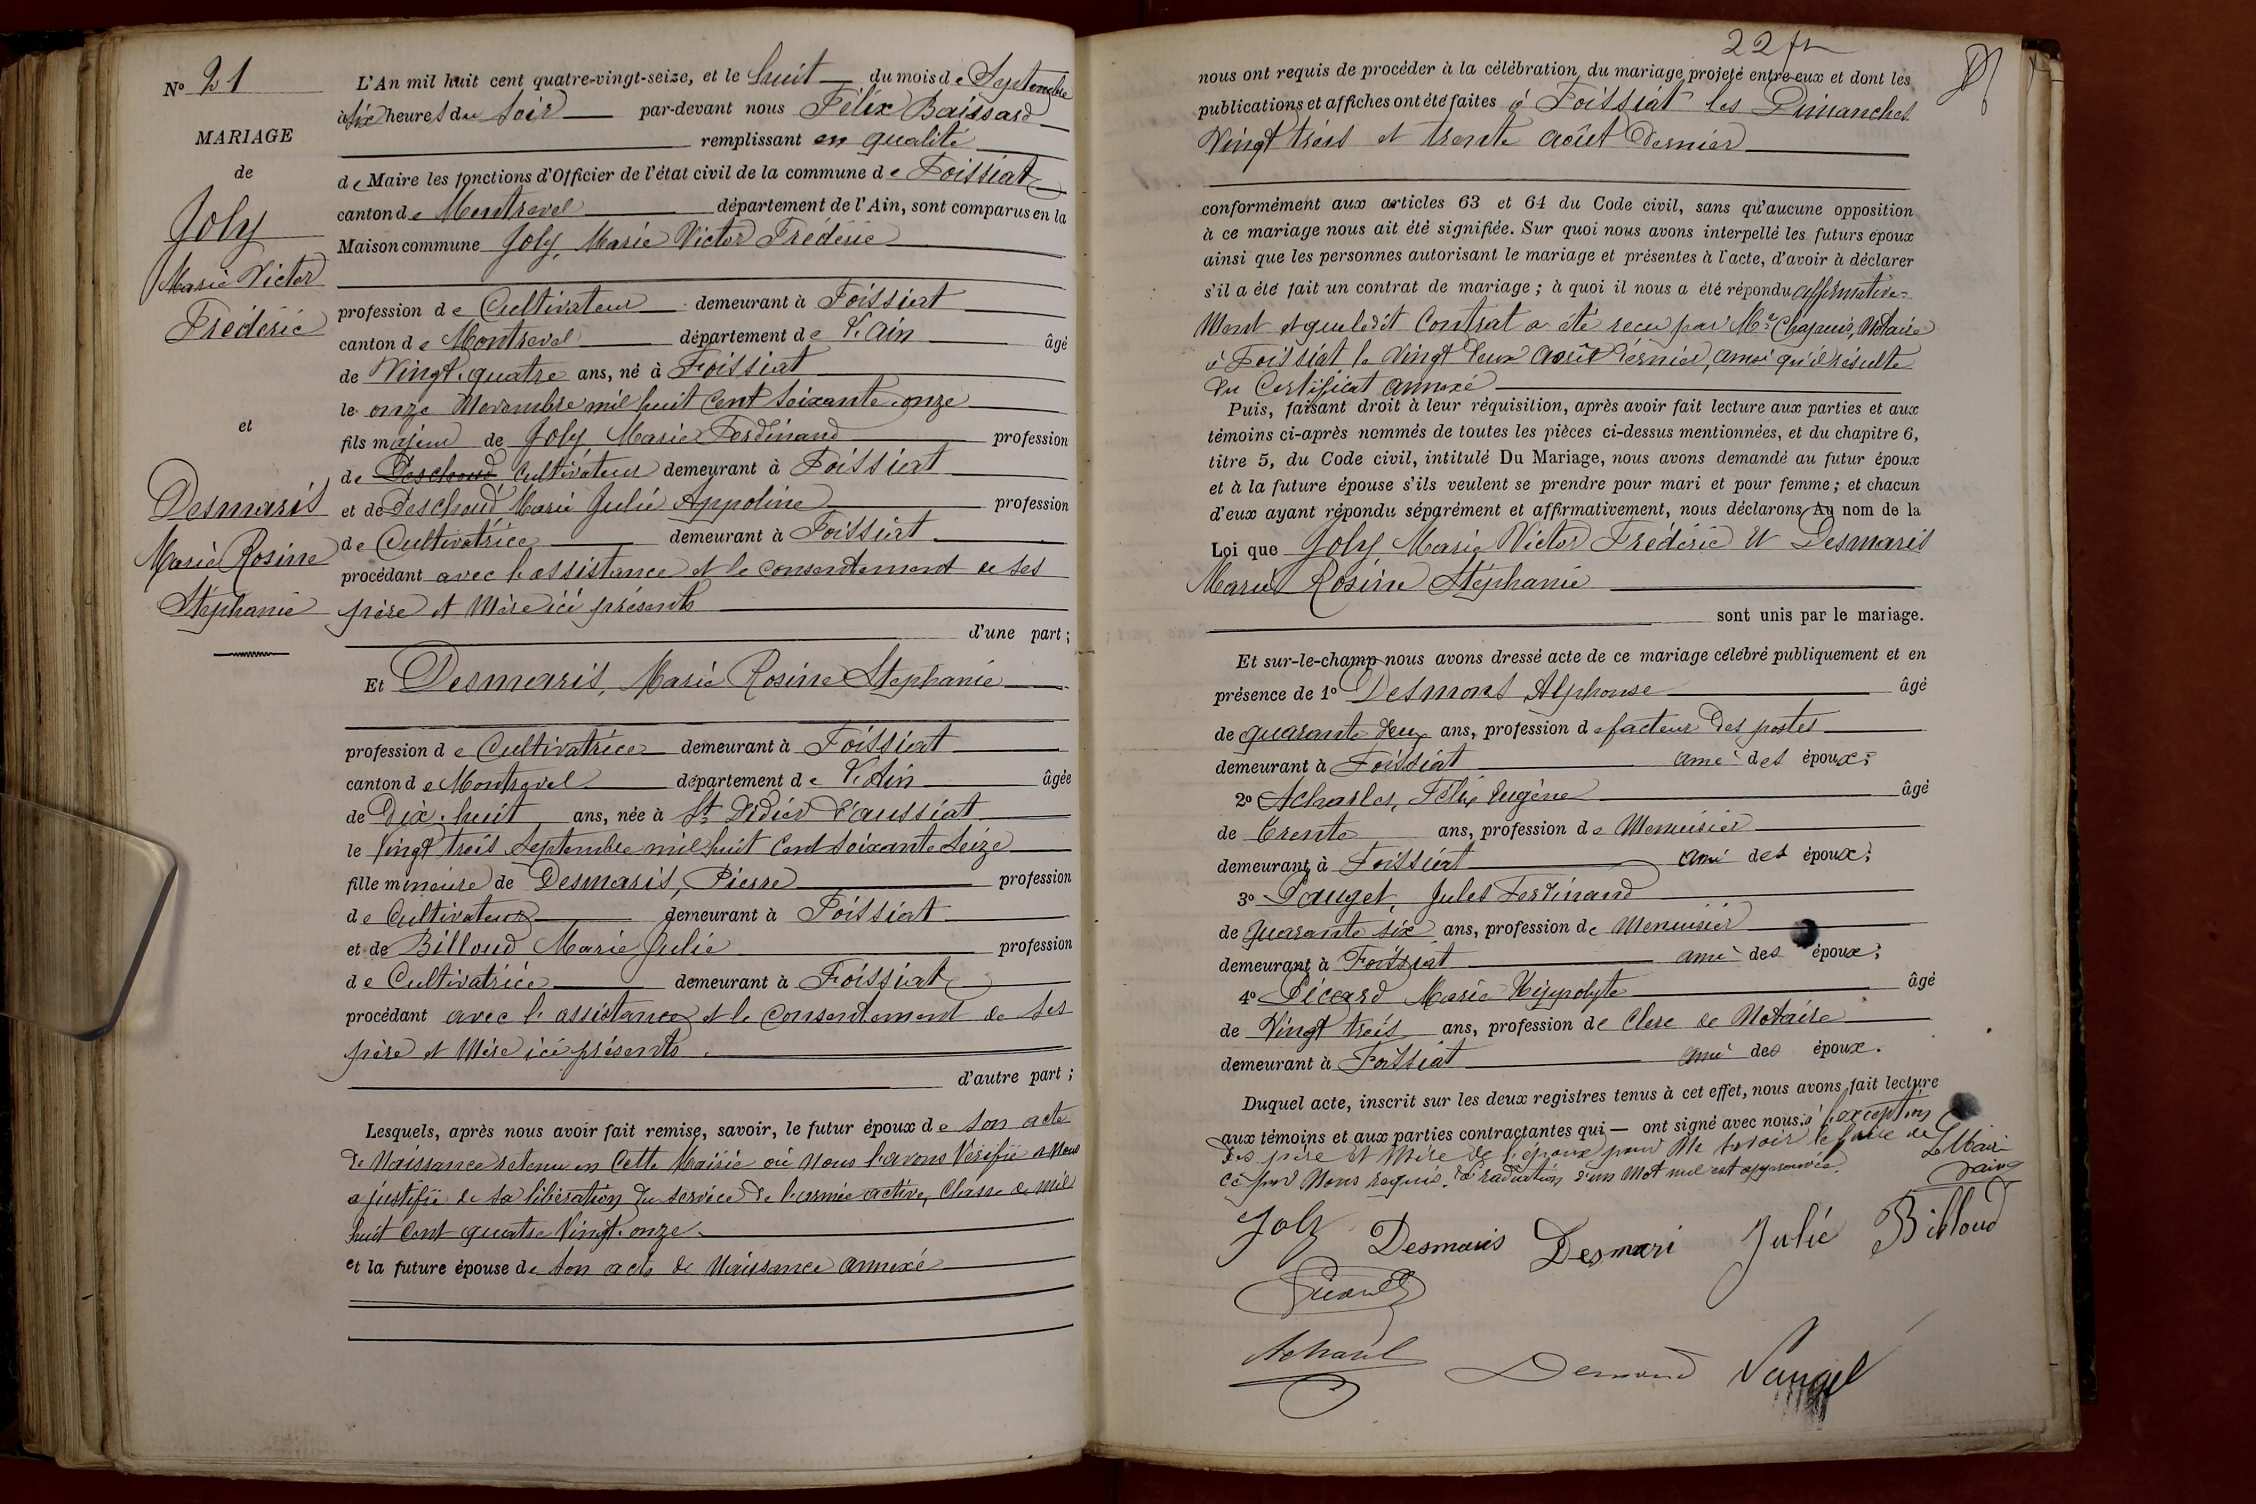 No 21
MARIAGE
de
Joly
Marie Victor
Frédéric
et
Desmaris
Marie Rosine
Stéphanie
L'An mil huit cent quatre-vingt-seize, et le huit du mois de Septembre
à six heures du soir par-devant nous Félix Baissard
remplissant en qualité
de Maire les fonctions d'Officier de l'état civil de la commune de Foissiat
canton de Montrevel département de l'Ain, sont comparus en la
Maison commune Joly, Marie Victor Frédéric
profession de Cultivateur demeurant à Foissiat
canton de Montrevel département de l'Ain âgé
de Vingt-quatre ans, né à Foissiat
le onze Novembre mil huit Cent Soixante-onze
fils majeur de Joly Marie Ferdinand profession
de Deschoud Cultivateur demeurant à Foissiat
et de Deschoud Marie Julie Appoline profession
de Cultivatrice demeurant à Foissiat
procédant avec l'assistance et le consentement de ses
père et Mère ici présents
d'une part ;
Et Desmaris, Marie Rosine Stéphanie
profession de Cultivatrice demeurant à Foissiat
canton de Montrevel département de l'Ain âgée
de Dix-huit ans, née à St Didier d'Aussiat
le Vingt trois Septembre mil huit Cent soixante Seize
fille mineure de Desmaris, Pierre profession
de Cultivateur demeurant à Foissiat
et de Billoud Marie Julie profession
de Cultivatrice demeurant à Foissiat
procédant avec l'assistance et le Consentement de ses
père et Mère ici présents.
d'autre part ;
Lesquels, après nous avoir fait remise, savoir, le futur époux de son acte
de Naissance retenu en Cette Mairie où nous l'avons Vérifié et Nous
a justifié de sa libération du service de l'armée active, Classe de mil
huit Cent quatre Vingt-onze.
et la future épouse de son acte de Naissance annexé
22
nous ont requis de procéder à la célébration du mariage projeté entre eux et dont les
publications et affiches ont été faites à Foissiat les Dimanches
Vingt trois et trente Août Dernier
conformément aux articles 63 et 64 du Code civil, sans qu'aucune opposition
à ce mariage nous ait été signifiée. Sur quoi nous avons interpellé les futurs époux
ainsi que les personnes autorisant le mariage et présentes à l'acte, d'avoir à déclarer
s'il a été fait un contrat de mariage ; à quoi il nous a été répondu affirmative=
Ment et que ledit Contrat a été reçu par Me Chapuis, Notaire
à Foissiat le Vingt Deux Août Dernier, ainsi qu'il résulte
du Certificat annexé
Puis, faisant droit à leur réquisition, après avoir fait lecture aux parties et aux
témoins ci-après nommés de toutes les pièces ci-dessus mentionnées, et du chapitre 6,
titre 5, du Code civil, intitulé Du Mariage, nous avons demandé au futur époux
et à la future épouse s'ils veulent se prendre pour mari et pour femme ; et chacun
d'eux ayant répondu séparément et affirmativement, nous déclarons Au nom de la
Loi que Joly Marie Victor Frédéric et Desmaris
Marie Rosine Stéphanie
sont unis par le mariage.
Et sur-le-champ nous avons dressé acte de ce mariage célébré publiquement et en
présence de 1o Alphonse âgé
de quarante deux ans, profession de facteur des postes
demeurant à Foissiat ami des époux ;
2o Acharles, Félix Eugène âgé
de trente ans, profession de Menuisier
demeurant à Foissiat ami des époux ;
3o Jules Ferdinand
de quarante six ans, profession de Menuisier
demeurant à Foissiat ami des époux ;
4o Picard Marie Hippolyte âgé
de Vingt trois ans, profession de Clerc de Notaire
demeurant à Foissiat ami des époux.
Duquel acte, inscrit sur les deux registres tenus à cet effet, nous avons fait lecture
aux témoins et aux parties contractantes qui — ont signé avec nous à l'exception
des père et Mère de l'époux pour ne savoir le faire de
ce par Nous requis. La radiation d'un Mot nul est approuvée.
Joly Desmaris Desmari Julie Billoud
Picard